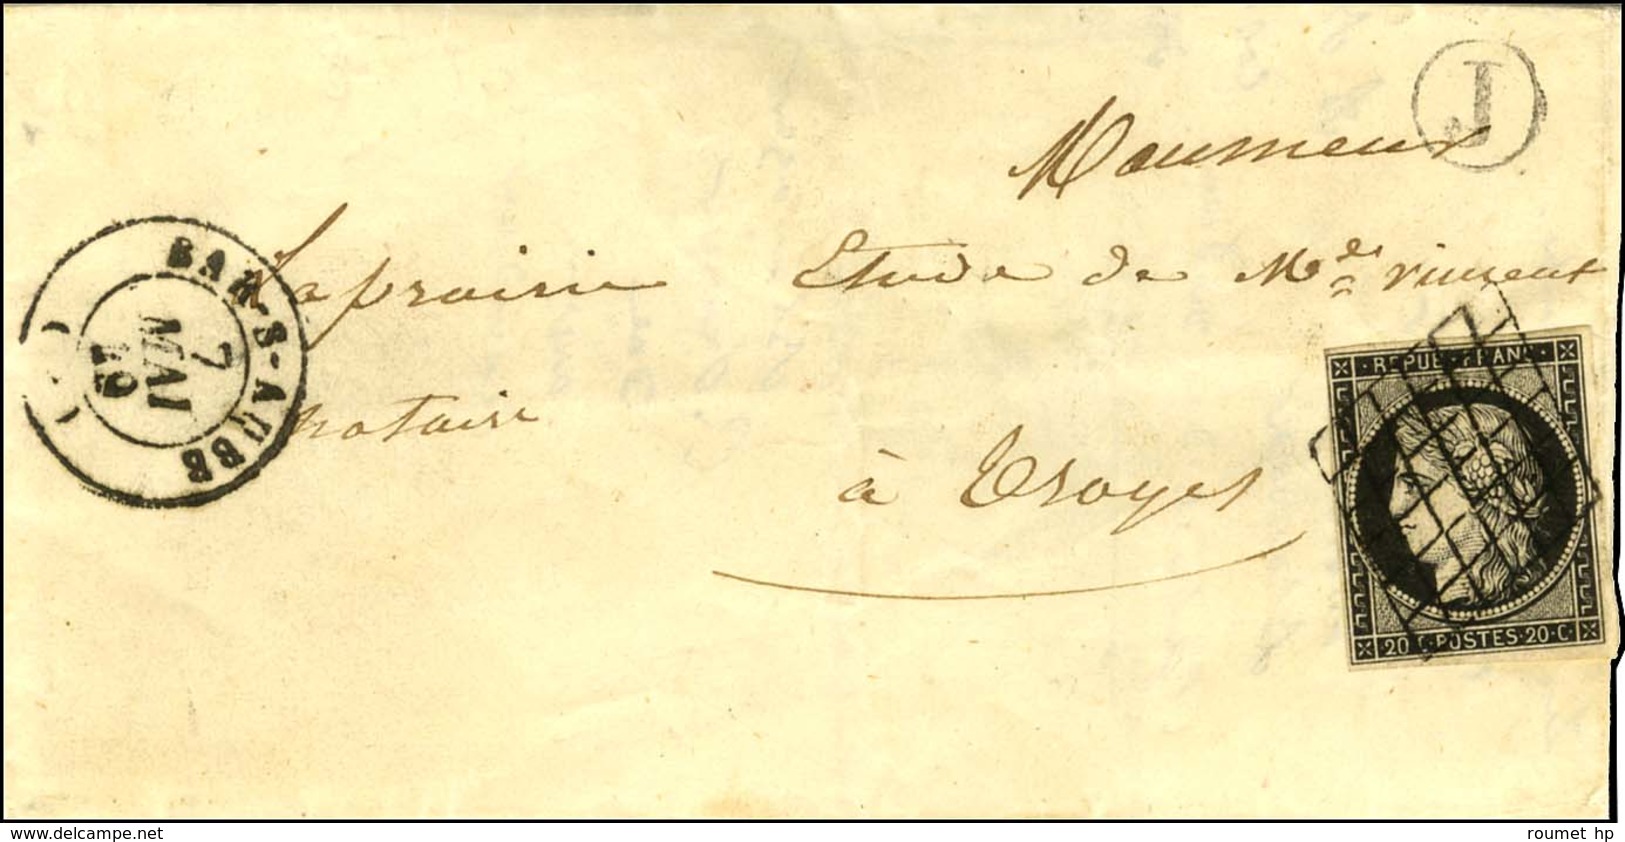 J
Monsieur
Laprairie Etude de Mde Vincent
notaire
à Troyes
BAR-S-AUBE
7
MAI
49
REPUB. FRANC.
20 C. POSTES. 20. C.
www.delcampe.net
roumet hp